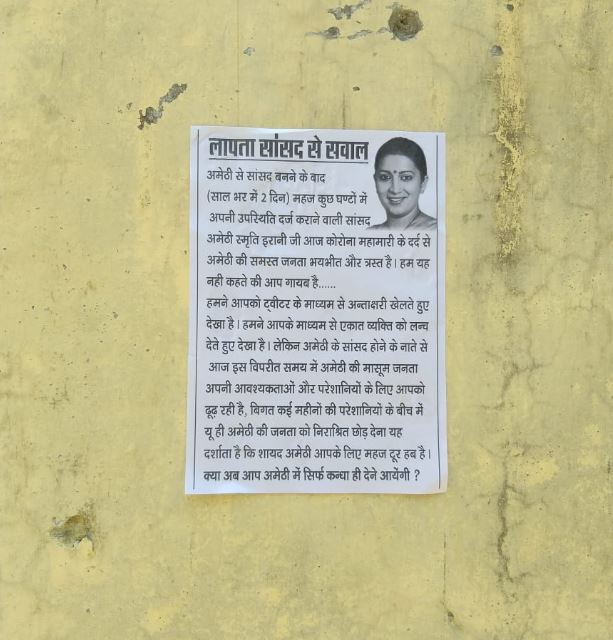 लापता सांसद से सवाल
अमेठी से सांसद बनने के बाद
(साल भर में 2 दिन) महज कुछ घण्टों में
अपनी उपस्थिति दर्ज कराने वाली सांसद
अमेठी स्मृति इरानी जी आज कोरोना महामारी के दर्द से
अमेठी की समस्त जनता भयभीत और त्रस्त है। हम यह
नही कहते की आप गायब है......
हमने आपको ट्वीटर के माध्यम से अन्ताक्षरी खेलते हुए
देखा है। हमने आपके माध्यम से एकात व्यक्ति को लन्च
देते हुए देखा है। लेकिन अमेठी के सांसद होने के नाते से
आज इस विपरीत समय में अमेठी की मासूम जनता
अपनी आवश्यकताओं और परेशानियों के लिए आपको
ढूढ़ रही है, विगत कई महीनों की परेशानियों के बीच में
यू ही अमेठी की जनता को निराश्रित छोड़ देना यह
दर्शाता है कि शायद अमेठी आपके लिए महज टूर हब है।
क्या अब आप अमेठी में सिर्फ कन्धा ही देने आयेंगी ?